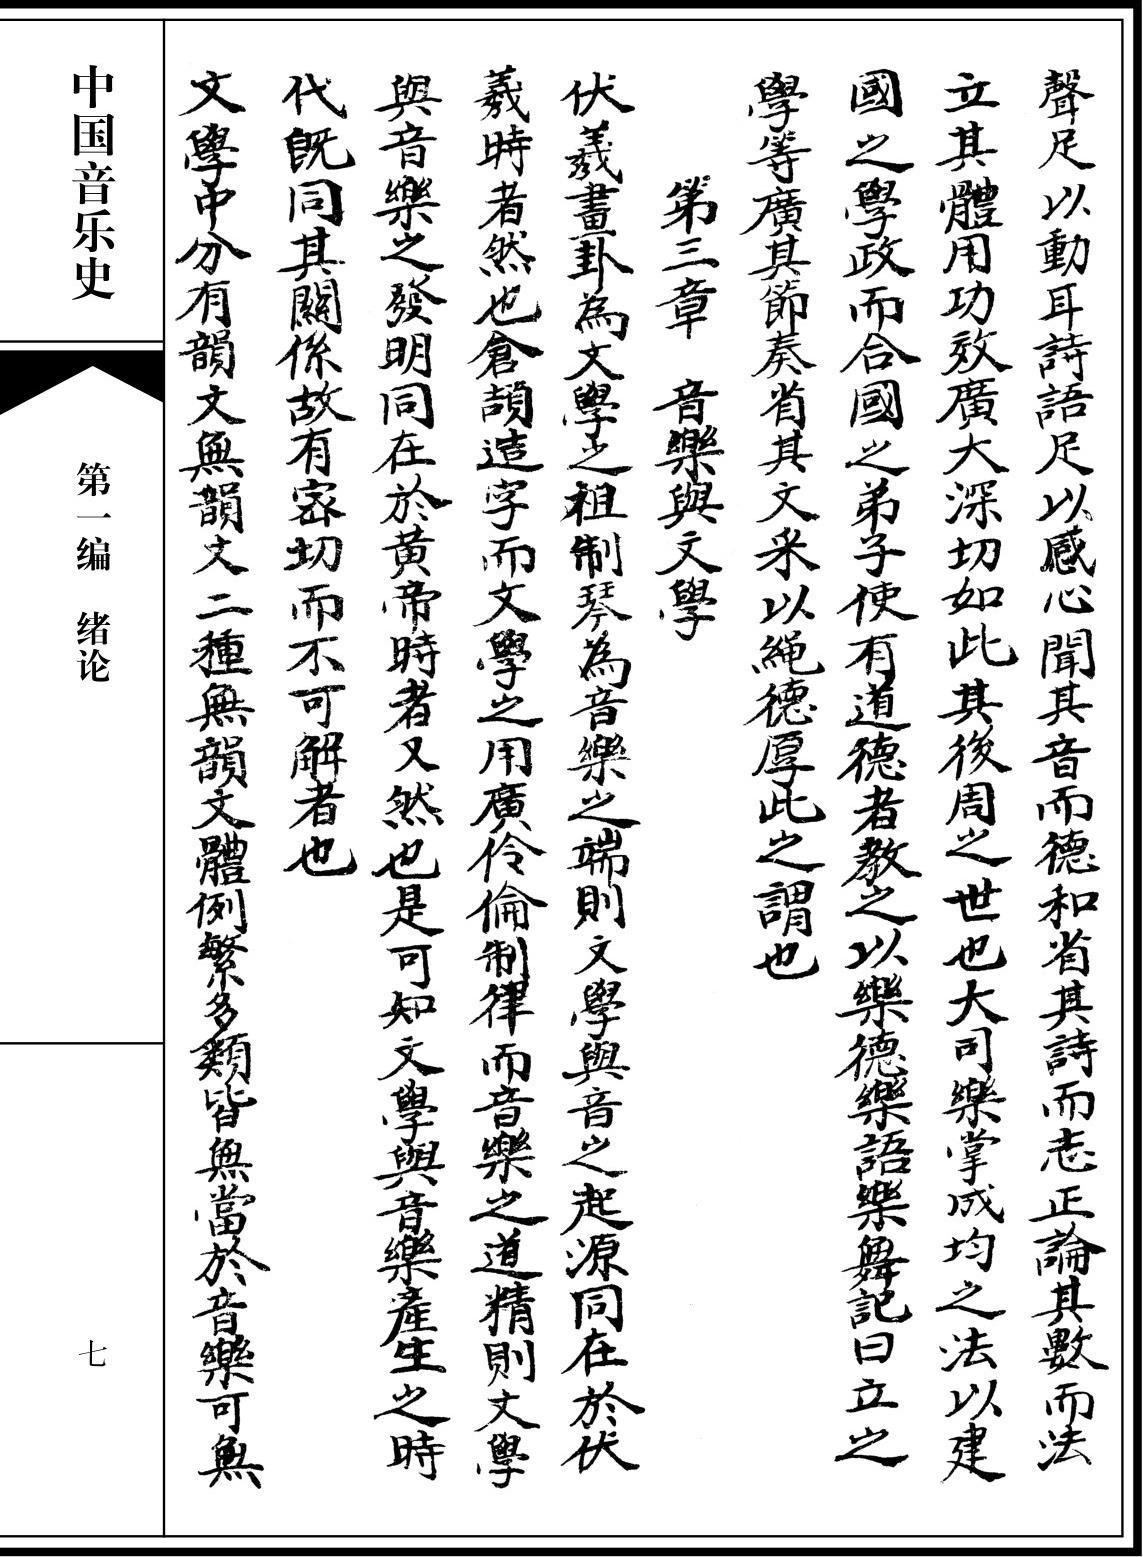 聲足以動耳詩語足以感心聞其音而德和省其詩而志正論其數而法
立其體用功效廣大深切如此其後周之世也大司樂掌成均之法以建
國之學政而合國之弟子使有道德者教之以樂德樂語樂舞記曰立之
學等廣其節奏省其文采以繩德厚此之謂也
第三章　音樂與文學
伏羲畫卦為文學之祖制琴為音樂之端則文學與音之起源同在於伏
羲時者然也倉頡造字而文學之用廣伶倫制律而音樂之道精則文學
與音樂之發明同在於黄帝時者又然也是可知文學與音樂產生之時
代既同其關係故有密切而不可解者也
文學中分有韻文無韻文二種無韻文體例繁多類皆無當於音樂可無
中国音乐史
第一编　绪论
七